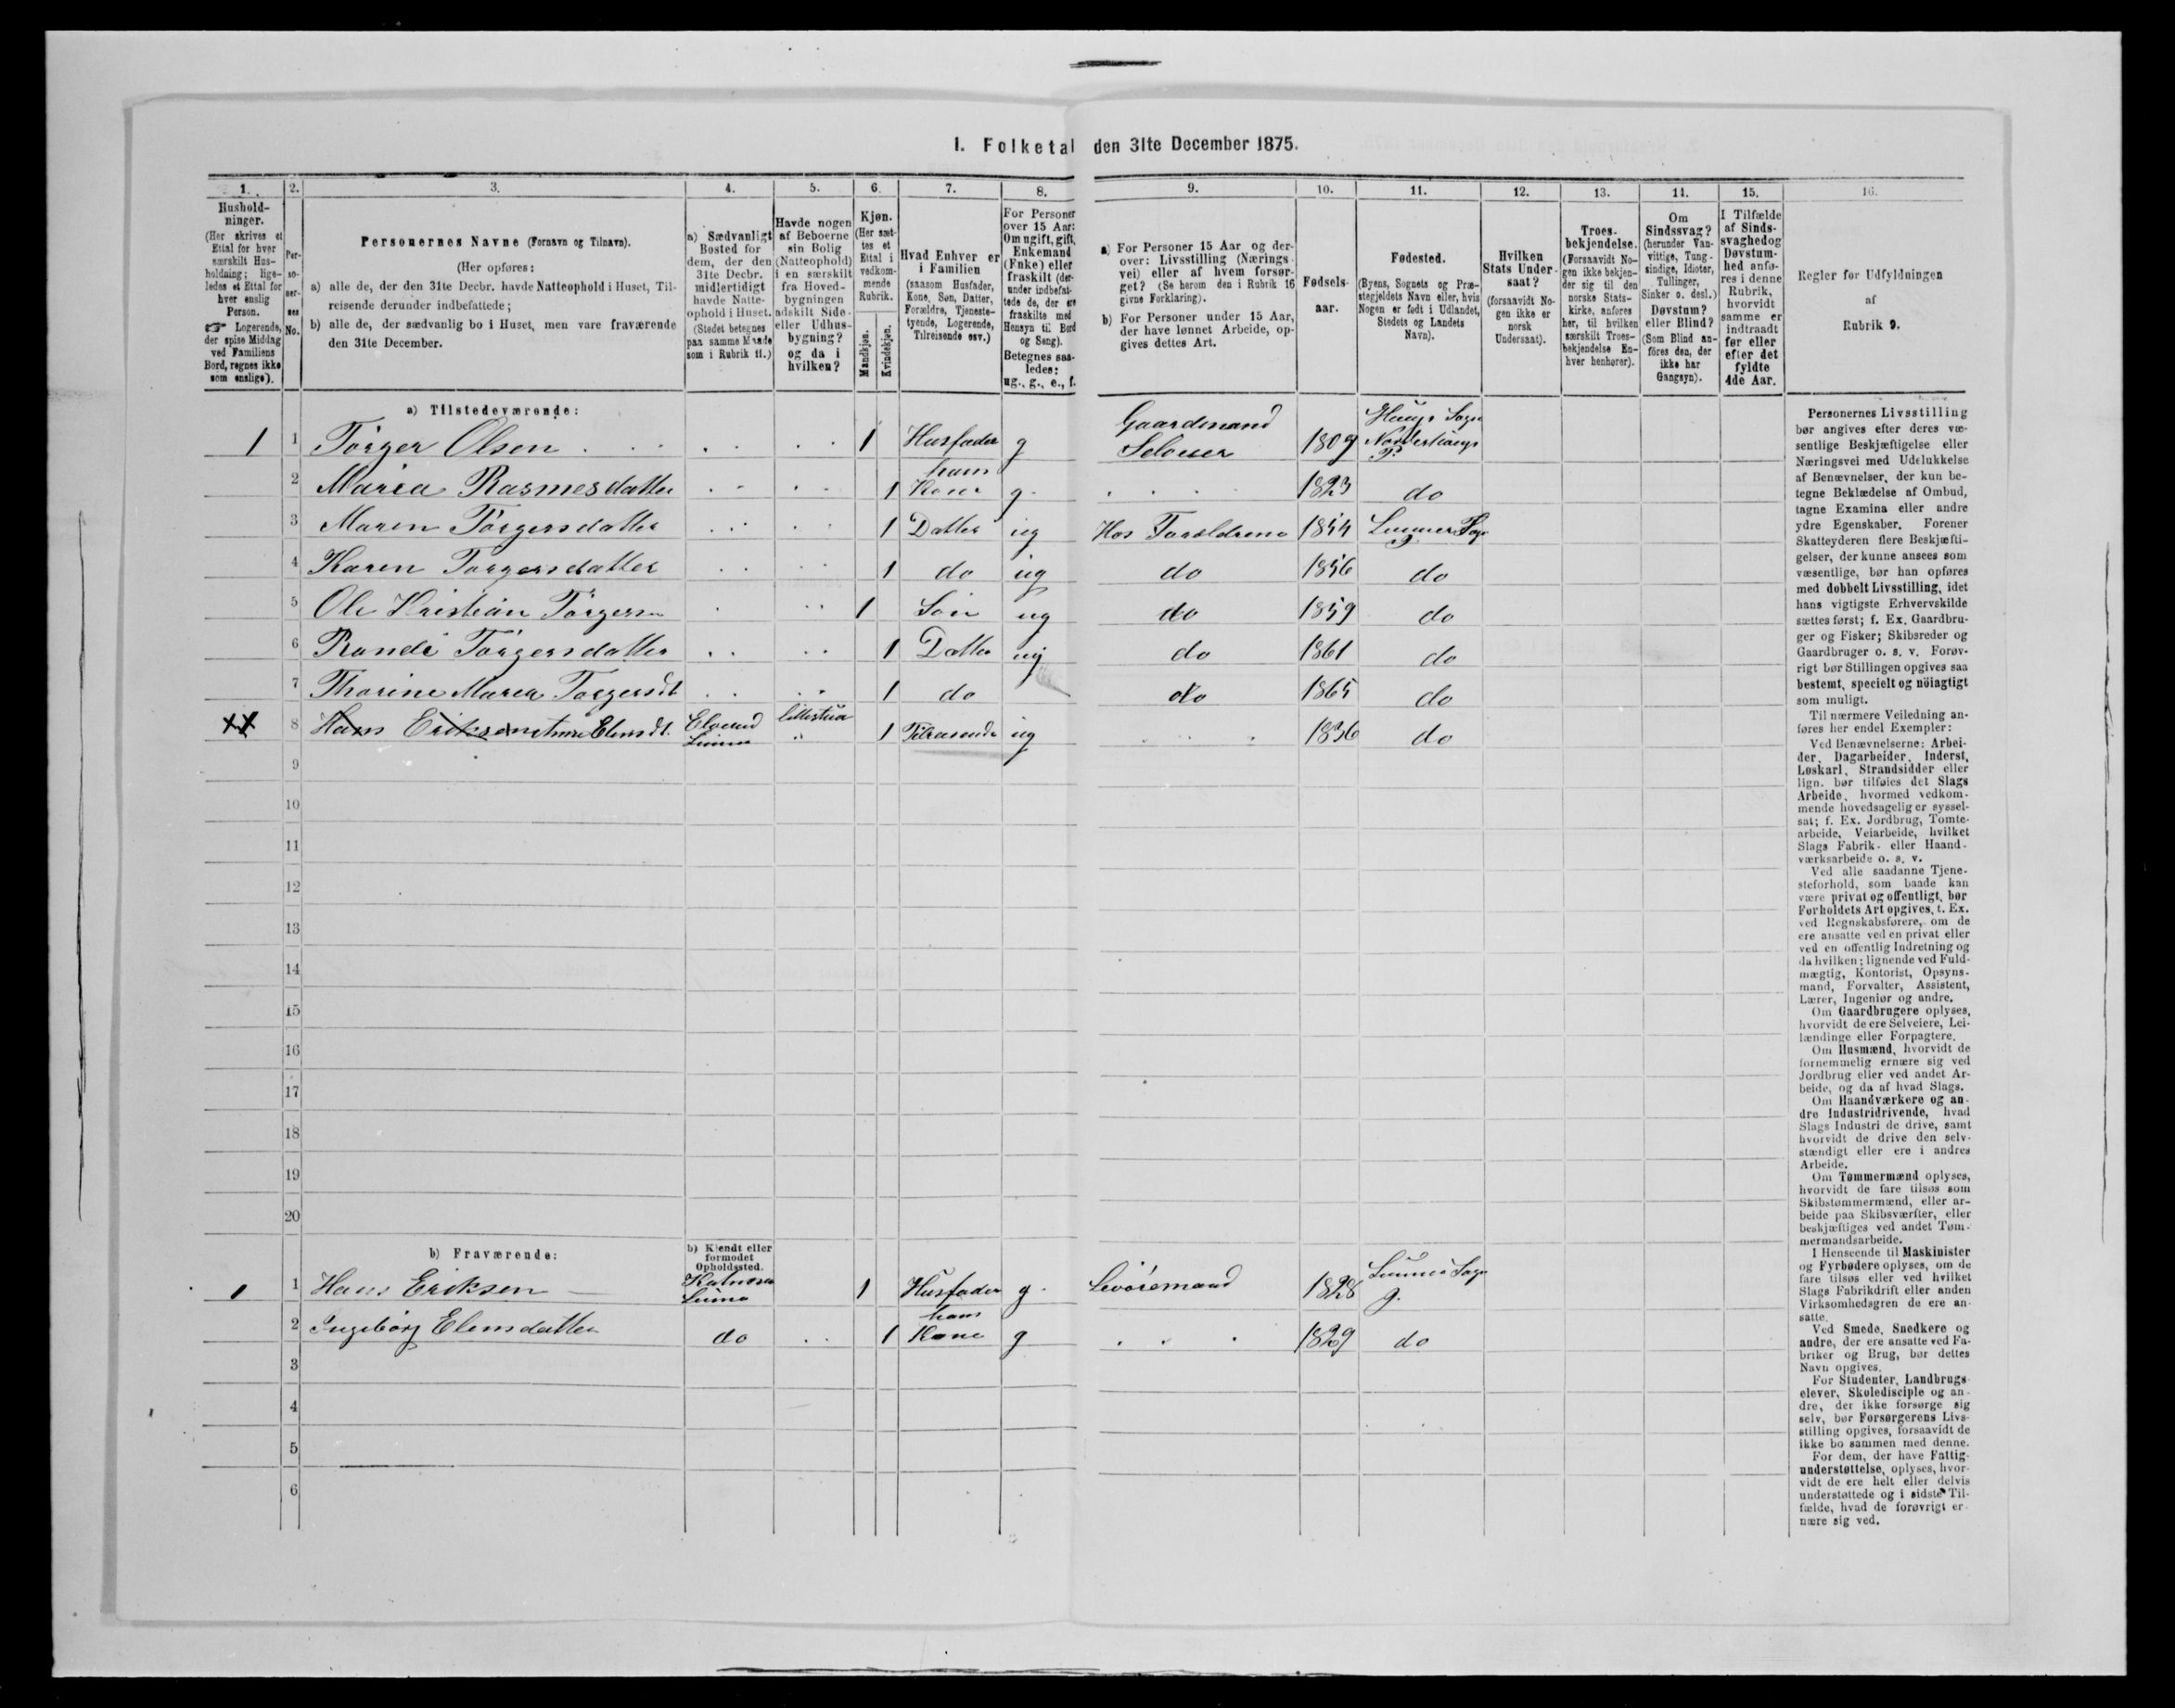 1. Folketal den 31te December 1875.
1.
2.
3.
4.
5.
6.
7.
8.
9.
10.
11.
12.
13.
14.
15.
16.
Hushold-
ninger.
(Her skrives et
Ettal for hver
særskilt Hus-
holdning; lige-
ledes et Ettal for
hver enslig
Person.
☞ Logerende,
der spise Middag
ved Familiens
Bord, regnes ikke
som enslige).
Per-
so-
ner-
nes
No.
Personernes Navne (Fornavn og Tilnavn).
(Her opføres:
a) alle de, der den 31te Decbr. havde Natteophold i Huset, Til-
reisende derunder indbefattede;
b) alle de, der sædvanlig bo i Huset, men vare fraværende
den 31te December.
a) Sædvanligt
Bosted for
dem, der den
31te Decbr.
midlertidigt
havde Natte-
ophold i Huset.
(Stedet betegnes
paa samme Maade
som i Rubrik 11.)
Havde nogen
af Beboerne
sin Bolig
(Natteophold)
i en særskilt
fra Hoved-
bygningen
adskilt Side-
eller Udhus-
bygning?
og da i
hvilken?
Kjøn.
(Her sæt-
tes et
Ettal i
vedkom-
mende
Rubrik.
Mandkjøn.
Kvindekjøn.
Hvad Enhver er
i Familien
(saasom Husfader,
Kone, Søn, Datter,
Forældre, Tjeneste-
tyende, Logerende,
Tilreisende osv.)
For Personer
over 15 Aar:
Om ugift, gift,
Enkemand
(Enke) eller
fraskilt (der-
under indbefat-
tede de, der ere
fraskilte med
Hensyn til Bord
og Seng).
Betegnes saa-
ledes:
ug., g., e., f.
a) For Personer 15 Aar og der-
over: Livsstilling (Nærings-
vei) eller af hvem forsør-
get? (Se herom den i Rubrik 16
givne Forklaring).
b) For Personer under 15 Aar,
der have lønnet Arbeide, op-
gives dettes Art.
Fødsels-
aar.
Fødested.
(Byens, Sognets og Præ-
stegjeldets Navn eller, hvis
Nogen er født i Udlandet,
Stedets og Landets
Navn).
Hvilken
Stats Under-
saat?
(forsaavidt No-
gen ikke er
norsk
Undersaat).
Troes-
bekjendelse.
(Forsaavidt No-
gen ikke bekjen-
der sig til den
norske Stats-
kirke, anføres
her, til hvilken
særskilt Troes-
bekjendelse En-
hver henhører).
Om
Sindssvag?
(herunder Van-
vittige, Tung-
sindige, Idioter,
Tullinger,
Sinker o. desl.)
Døvstum?
eller Blind?
(Som Blind an-
føres den, der
ikke har
Gangsyn).
I Tilfælde
af Sinds-
svaghedog
Døvstum-
hed anfø-
res i denne
Rubrik,
hvorvidt
samme er
indtraadt
før eller
efter det
fyldte
4de Aar.
Regler for Udfyldningen
af
Rubrik 9.
a) Tilstedeværende:
1 1 Torger Olsen 1 Husfader g Gaardmand Seloeier 1809 Haugs Sogn Norderhaugs P.
2 Maria Rasmesdatter 1 hans Kone g 1823 do
3 Maren Torgersdatter 1 Datter ug Hos Foreldrene 1854 Lunner Sogn
4 Karen Torgersdatter 1 do ug do 1856 do
5 Ole Kristian Torgersen 1 Søn ug do 1859 do
6 Randi Torgersdatter 1 Datter ug do 1861 do
7 Thorine Maria Torgersdt 1 do do 1865 do
8 Hans Eriksen Elensdt. Lunner 1 Tilreisende ug 1836 do
9
10
11
12
13
14
15
16
17
18
19
20
b) Fraværende:
b) Kjendt eller
formodet
Opholdssted.
1 1 Hans Eriksen 1 Husfader g. 1828 Lunner Sogn
2 Ingeborg Elensdatter do 1 hans Kone g 1829 do
3
4
5
6
Personernes Livsstilling
bør angives efter deres væ-
sentlige Beskjæftigelse eller
Næringsvei med Udelukkelse
af Benævnelser, der kun be-
tegne Beklædelse af Ombud,
tagne Examina eller andre
ydre Egenskaber. Forener
Skatteyderen flere Beskjæfti-
gelser, der kunne ansees som
væsentlige, bør han opføres
med dobbelt Livsstilling, idet
hans vigtigste Erhvervskilde
sættes først; f. Ex. Gaardbru-
ger og Fisker; Skibsreder og
Gaardbruger o. s. v. Forøv-
rigt bør Stillingen opgives saa
bestemt, specielt og nöiagtigt
som muligt.
Til nærmere Veiledning an-
føres her endel Exempler:
Ved Benævnelserne: Arbei-
der, Dagarbeider, Inderst,
Løskarl, Strandsidder eller
lign. bør tilføies det Slags
Arbeide, hvormed vedkom-
mende hovedsagelig er syssel-
sat; f. Ex. Jordbrug, Tomte-
arbeide, Veiarbeide, hvilket
Slags Fabrik- eller Haand-
værksarbeide o. s. v.
Ved alle saadanne Tjene-
steforhold, som baade kan
være privat og offentligt, bør
Forholdets Art opgives, t. Ex.
ved Regnskabsførere, om de
ere ansatte ved en privat eller
ved en offentlig Indretning og
da hvilken; lignende ved Fuld-
mægtig, Kontorist, Opsyns-
mand, Forvalter, Assistent,
Lærer, Ingeniør og andre.
Om Gaardbrugere oplyses,
hvorvidt de ere Selveiere, Lei-
lændinge eller Forpagtere.
Om Husmænd, hvorvidt de
fornemmelig ernære sig ved
Jordbrug eller ved andet Ar-
beide, og da af hvad Slags.
Om Haandværkere og an-
dre Industridrivende, hvad
Slags Industri de drive, samt
hvorvidt de drive den selv-
stændigt eller ere i andres
Arbeide.
Om Tømmermænd oplyses,
hvorvidt de fare tilsøs som
Skibstømmermænd, eller ar-
beide paa Skibsværfter, eller
beskjæftiges ved andet Tøm-
mermandsarbeide.
I Henseende til Maskinister
og Fyrbødere oplyses, om de
fare tilsøs eller ved hvilket
Slags Fabrikdrift eller anden
Virksomhedsgren de ere an-
satte.
Ved Smede, Snedkere og
andre, der ere ansatte ved Fa-
briker og Brug, bør dettes
Navn opgives.
For Studenter, Landbrugs-
elever, Skoledisciple og an-
dre, der ikke forsørge sig
selv, bør Forsørgerens Livs-
stilling opgives, forsaavidt de
ikke bo sammen med denne.
For dem, der have Fattig-
understøttelse, oplyses, hvor-
vidt de ere helt eller delvis
understøttede og i sidste Til-
fælde, hvad de forøvrigt er-
nære sig ved.